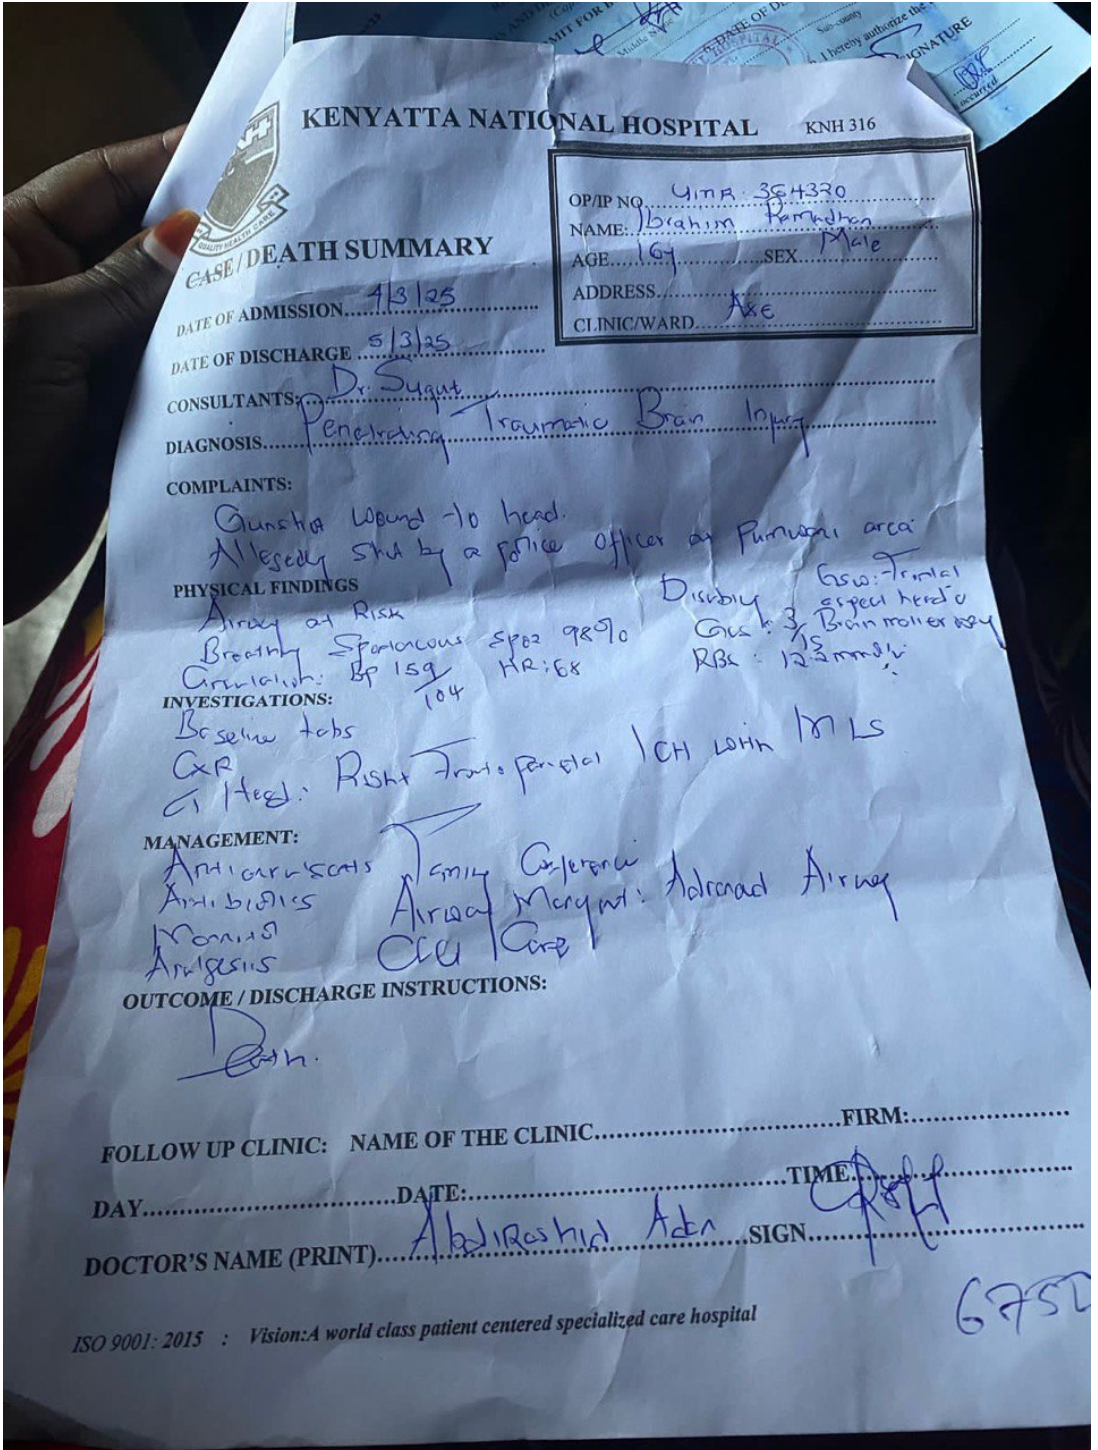 MIT FOR
Middle Name
DATE OF D
HOSPITAL
Sub-county
I hereby authorize the
SIGNATURE
occurred
KENYATTA NATIONAL HOSPITAL KNH 316
QUALITY HEALTH CARE
CASE / DEATH SUMMARY
OP/IP NO. 364320
NAME: Ibrahim Ramadhan
AGE 16y SEX Male
ADDRESS
CLINIC/WARD A&E
DATE OF ADMISSION 4/3/25
DATE OF DISCHARGE 5/3/25
CONSULTANTS: Dr. Sugut
DIAGNOSIS Penetrating Traumatic Brain Injury
COMPLAINTS:
Gunshot wound to head.
Allegedly shot by a police officer at Pumwani area
PHYSICAL FINDINGS
Airway at Risk
Breathing Spontaneous SPO2 98%
Circulation: BP 159/104 HR: 68
Disability GSW: Frontal aspect head
GCS: 3/15 Brain matter
RBS: 12.2 mmol/L
INVESTIGATIONS:
Baseline labs
CXR
CT Head: Right Fronto parietal ICH with MLS
MANAGEMENT:
Anticonvulsants Family Conference
Antibiotics Airway Adv Airway
Mannitol CCU Care
Analgesics
OUTCOME / DISCHARGE INSTRUCTIONS:
Death.
FOLLOW UP CLINIC: NAME OF THE CLINIC FIRM:
DAY DATE: TIME
DOCTOR'S NAME (PRINT) Abdirashid Aden SIGN
ISO 9001: 2015 : Vision:A world class patient centered specialized care hospital